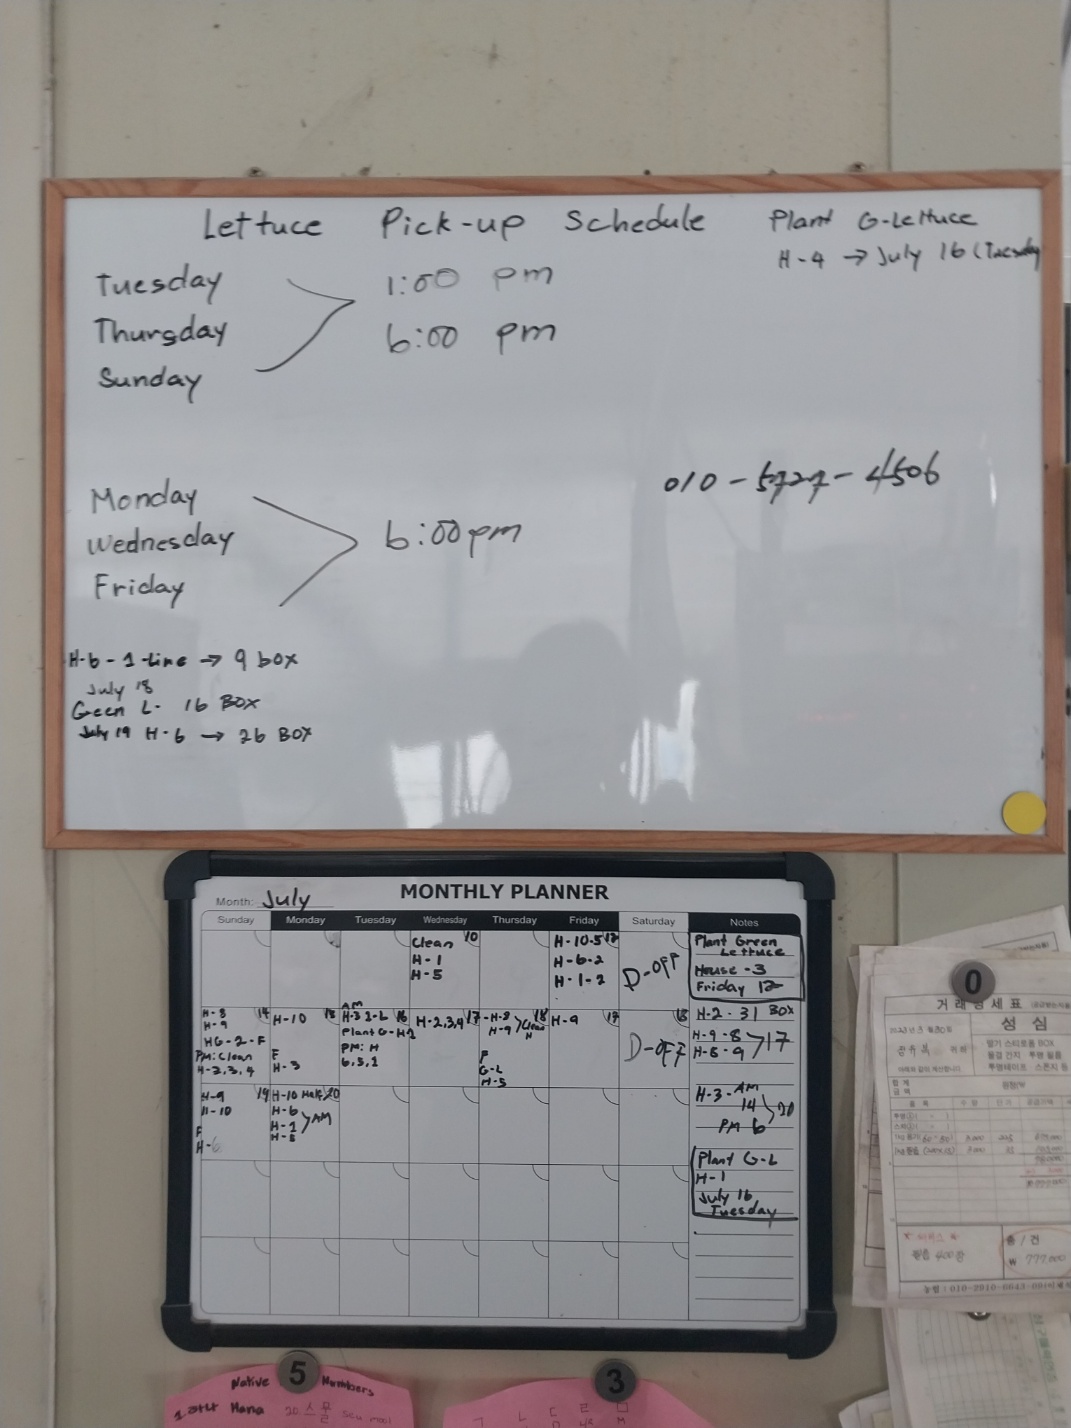 Lettuce Pick-up Schedule
Plant G-Lettuce
H-4 → July 16 (Tuesday
Tuesday 1:00 pm
Thursday 6:00 pm
Sunday
010-5727-4506
Monday
Wednesday 6:00 pm
Friday
H-6-1-Line → 9 box
July 18
Green L- 16 BOX
July 19 H-6 → 26 BOX
MONTHLY PLANNER
Month: July
Sunday Monday Tuesday Wednesday Thursday Friday Saturday Notes
Clean 10
H-1
H-5
H-10-5 12
H-6-2
H-1-2
D-OFF
Plant Green
Lettuce
House-3
Friday 12
H-8 14
H-9
HG-2-F
PM: Clean
H-2,3,4
H-10
F
H-3
AM
16
Plant G-H1
PM: H
6,5,1
H-2,3,4 17
H-8 18
H-9 Clean
F
G-L
H-5
H-9
D-OFF
H-2-31 BOX
H-9-8
H-8-9 17
H-3-AM
14
PM 6
H-9 19
H-10
F
H-10 Half 20
H-6
H-1 AM
H-5
Plant G-L
H-1
July 16
Tuesday
0
거래명세표
성심
딸기 스티로폼 BOX
귀하
₩ 777,000
5
3
Native Numbers
Hana